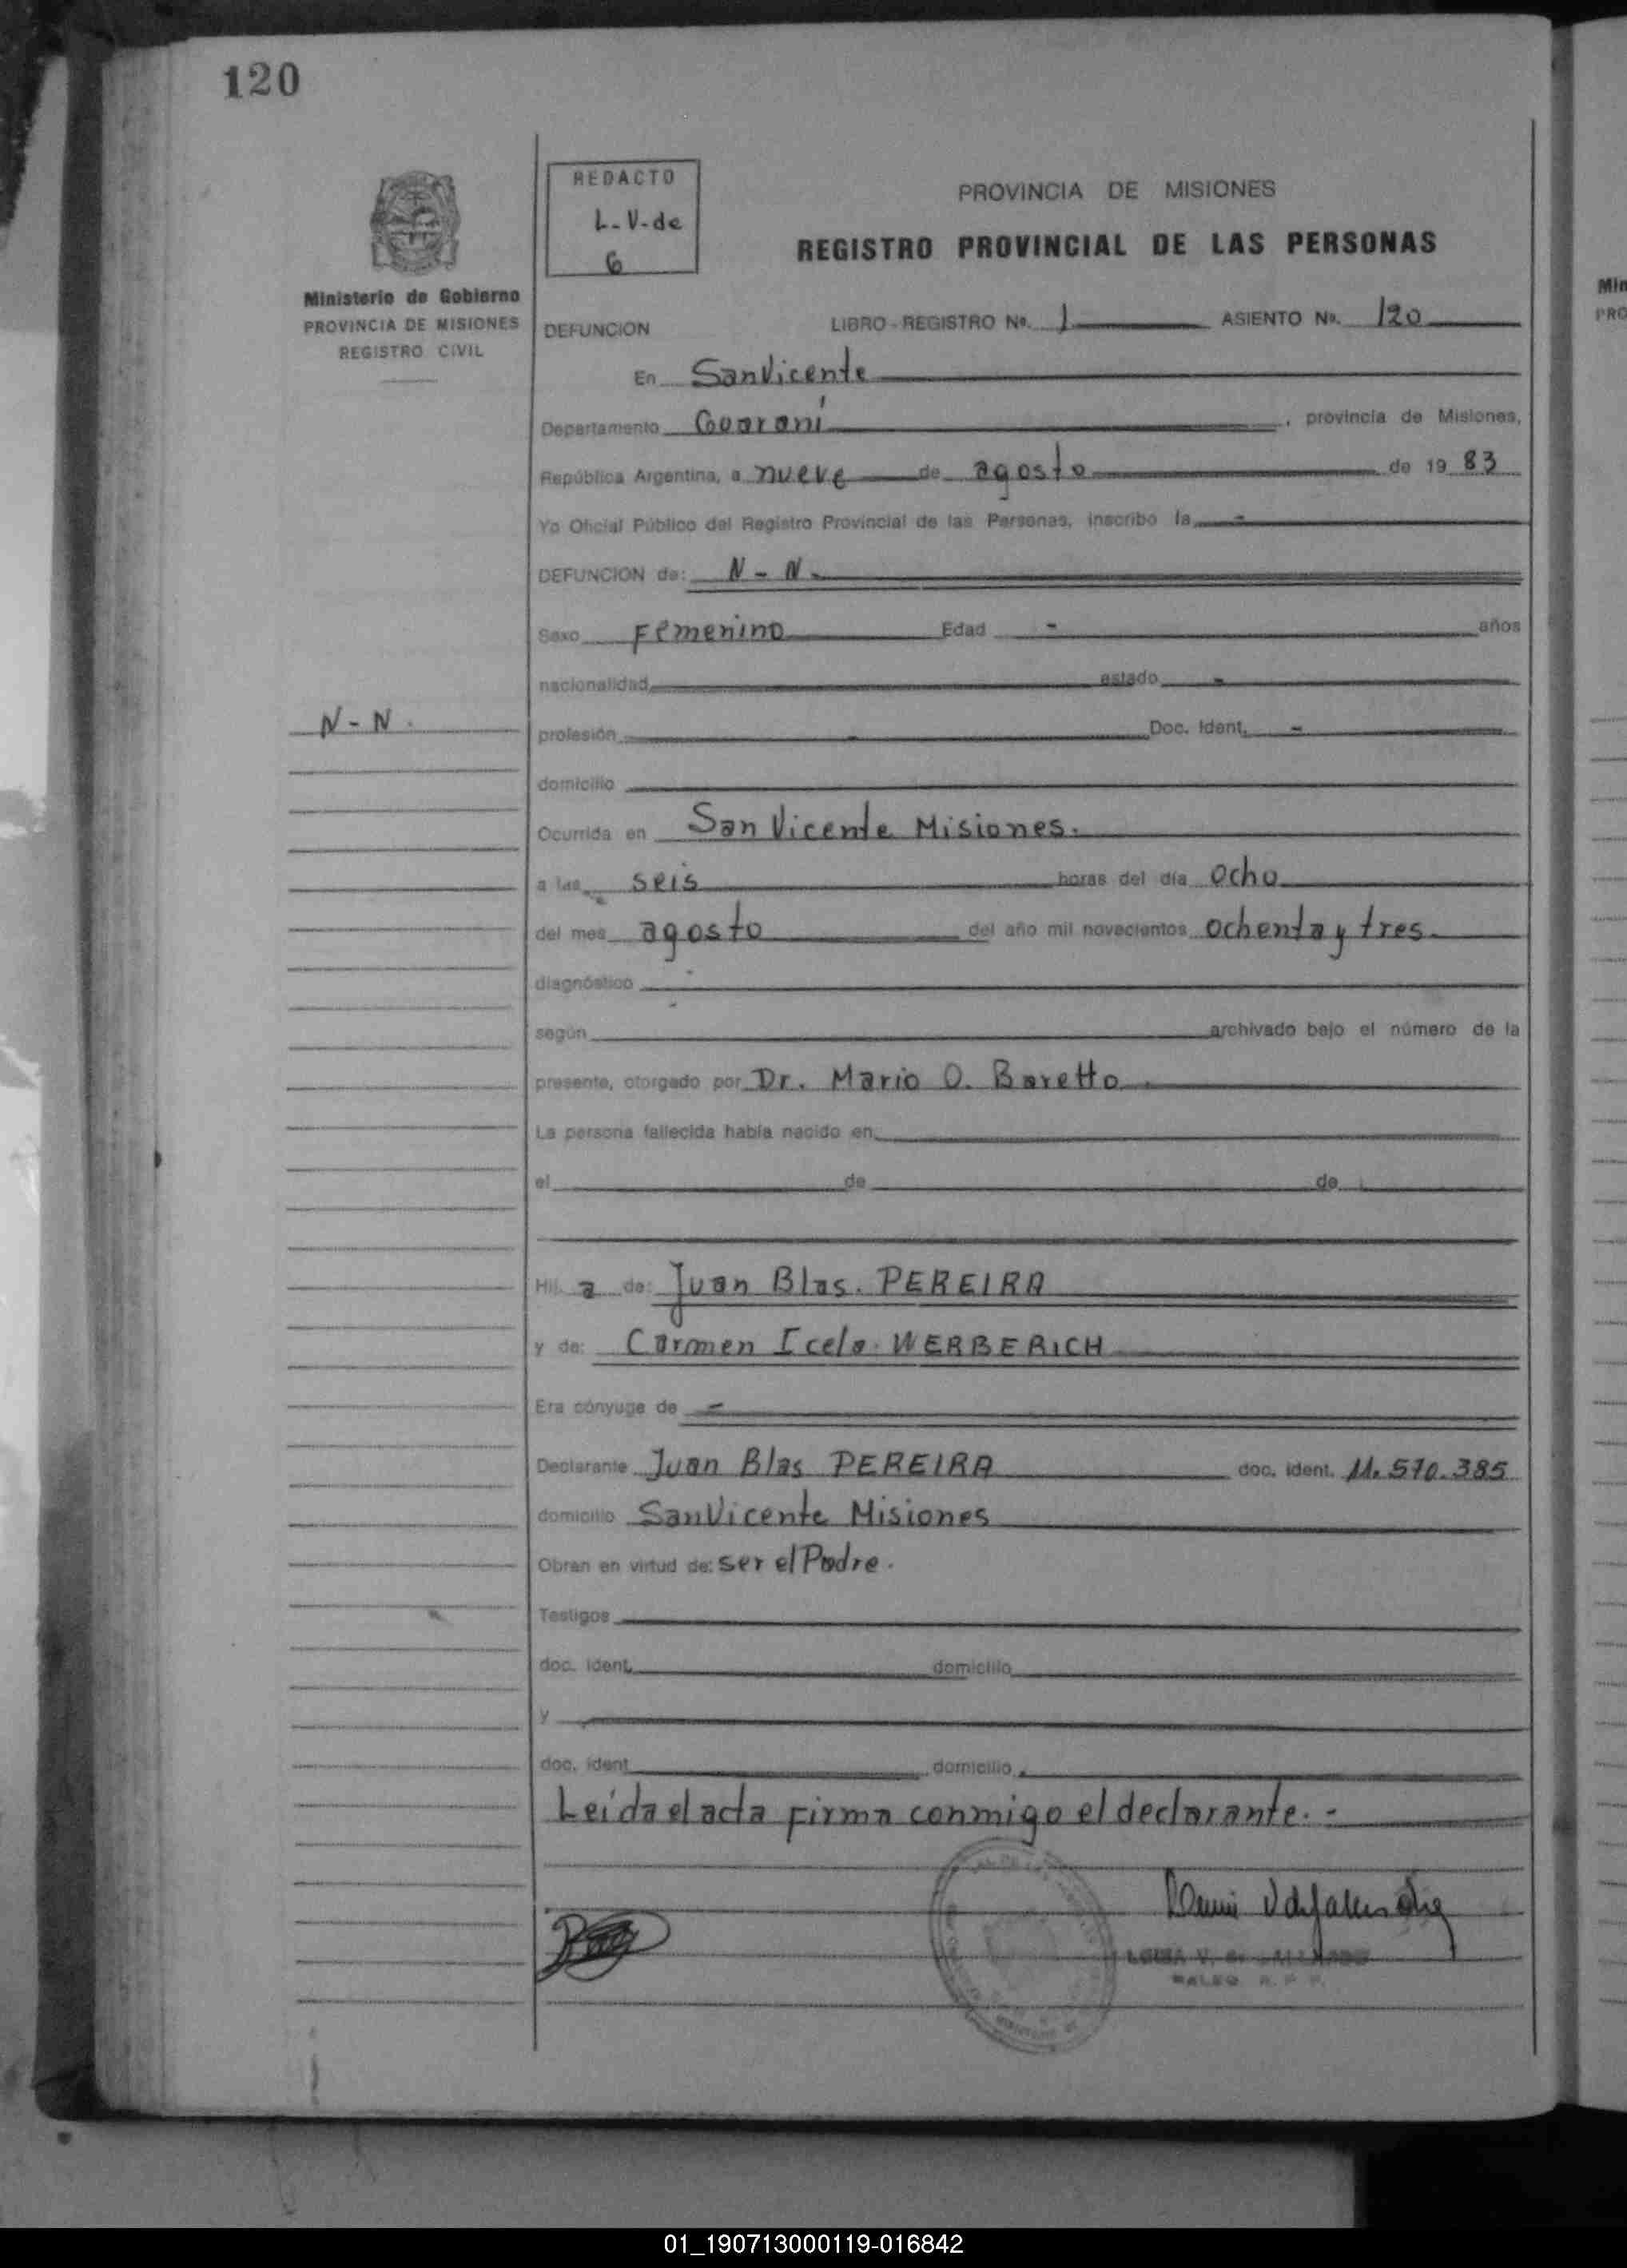 120
REDACTO
L-V-de
G
PROVINCIA DE MISIONES
REGISTRO PROVINCIAL DE LAS PERSONAS
Ministerio de Gobierno
PROVINCIA DE MISIONES
REGISTRO CIVIL
DEFUNCION LIBRO-REGISTRO Nº. 1 ASIENTO Nº. 120
En San Vicente
Departamento Guaraní, provincia de Misiones,
República Argentina, a nueve de agosto de 19 83
Yo Oficial Público del Registro Provincial de las Personas, inscribo la -
DEFUNCION de: N-N-
Sexo Femenino Edad - años
nacionalidad estado -
N-N.
profesión - Doc. Ident. -
domicilio
Ocurrida en San Vicente Misiones.
a las seis horas del día ocho
del mes agosto del año mil novecientos ochenta y tres.
diagnóstico
según archivado bajo el número de la
presente, otorgado por Dr. Mario O. Baretto.
La persona fallecida había nacido en
el de de
Hij a de: Juan Blas. PEREIRA
y de: Carmen Icela. WERBERICH
Era cónyuge de -
Declarante Juan Blas PEREIRA doc. ident. 11.570.385
domicilio San Vicente Misiones
Obran en virtud de: ser el Padre.
Testigos
doc. ident. domicilio
y
doc. ident domicilio
Leída el acta firma conmigo el declarante.-
01_190713000119-016842